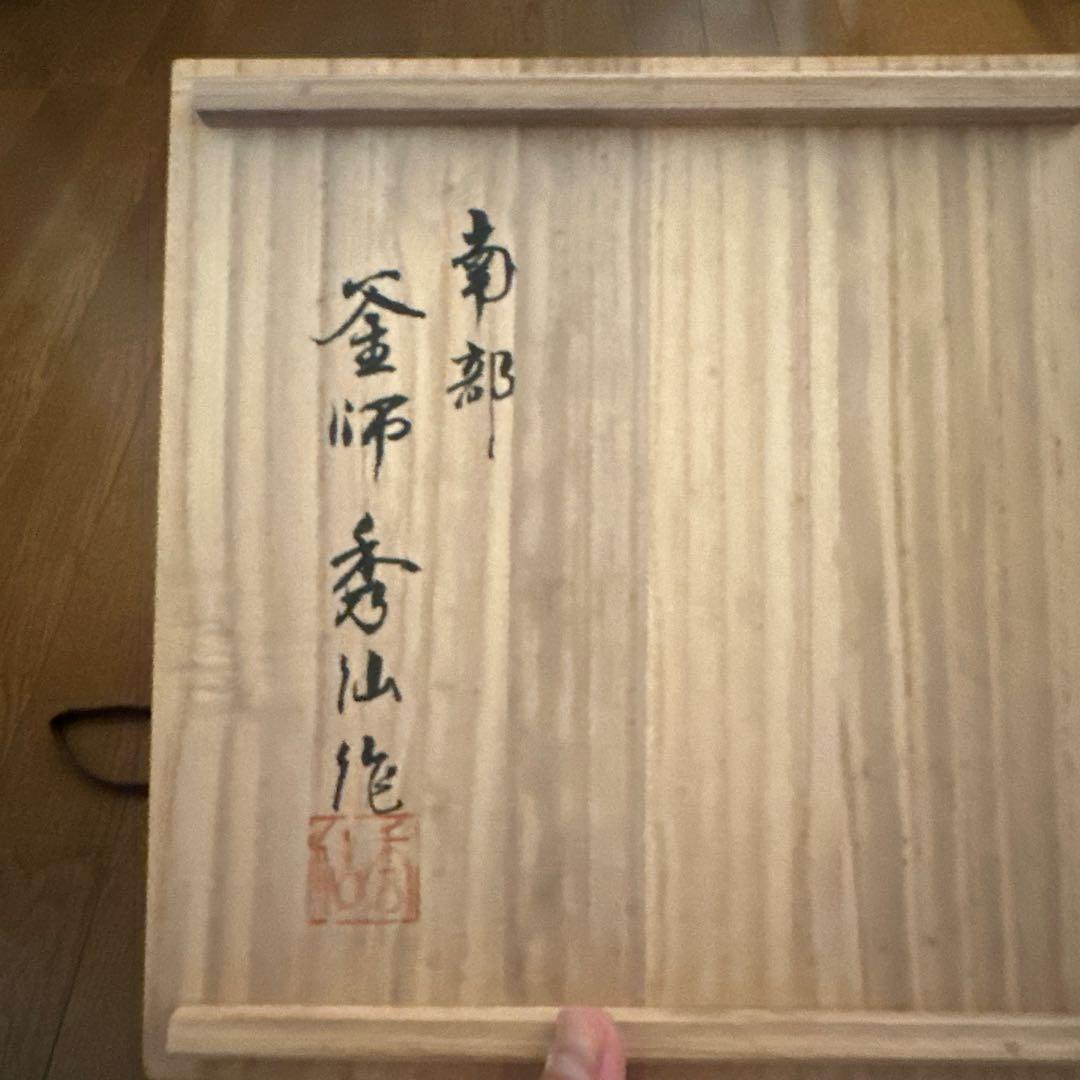 南部
釜師 秀仙作